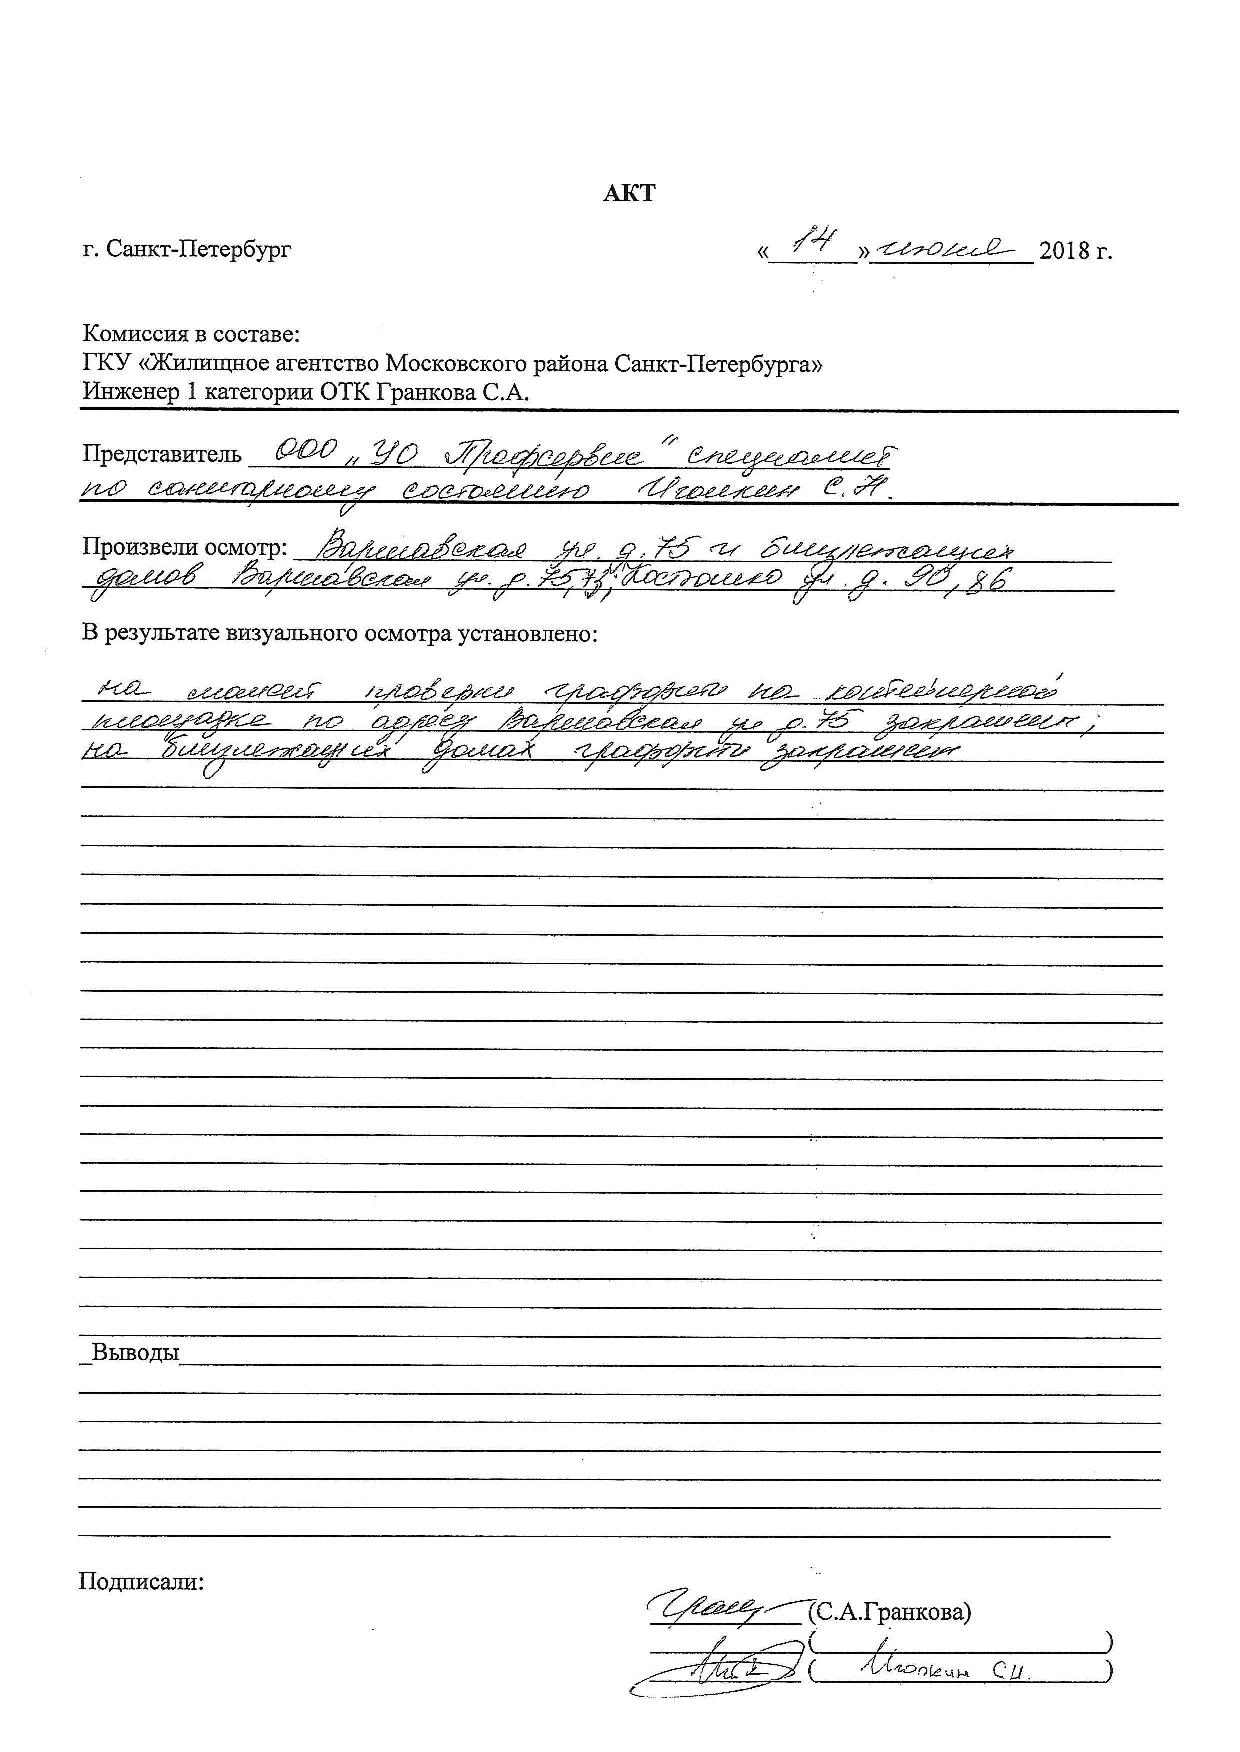 АКТ
г. Санкт-Петербург «14» июня 2018 г.
Комиссия в составе:
ГКУ «Жилищное агентство Московского района Санкт-Петербурга»
Инженер 1 категории ОТК Гранкова С.А.
Представитель ООО „УО Профсервис" специалист
по санитарному состоянию С.Н.
Произвели осмотр: Варшавская ул. д. 75 и близлежащих
домов Варшавская ул. д. 75, Костюшко ул. д. 90, 86
В результате визуального осмотра установлено:
на момент проверки граффити на контейнерной
площадке по адресу Варшавская ул д. 75 закрашены;
на близлежащих домах граффити закрашены
Выводы
Подписали:
(С.А.Гранкова)
( )
( )